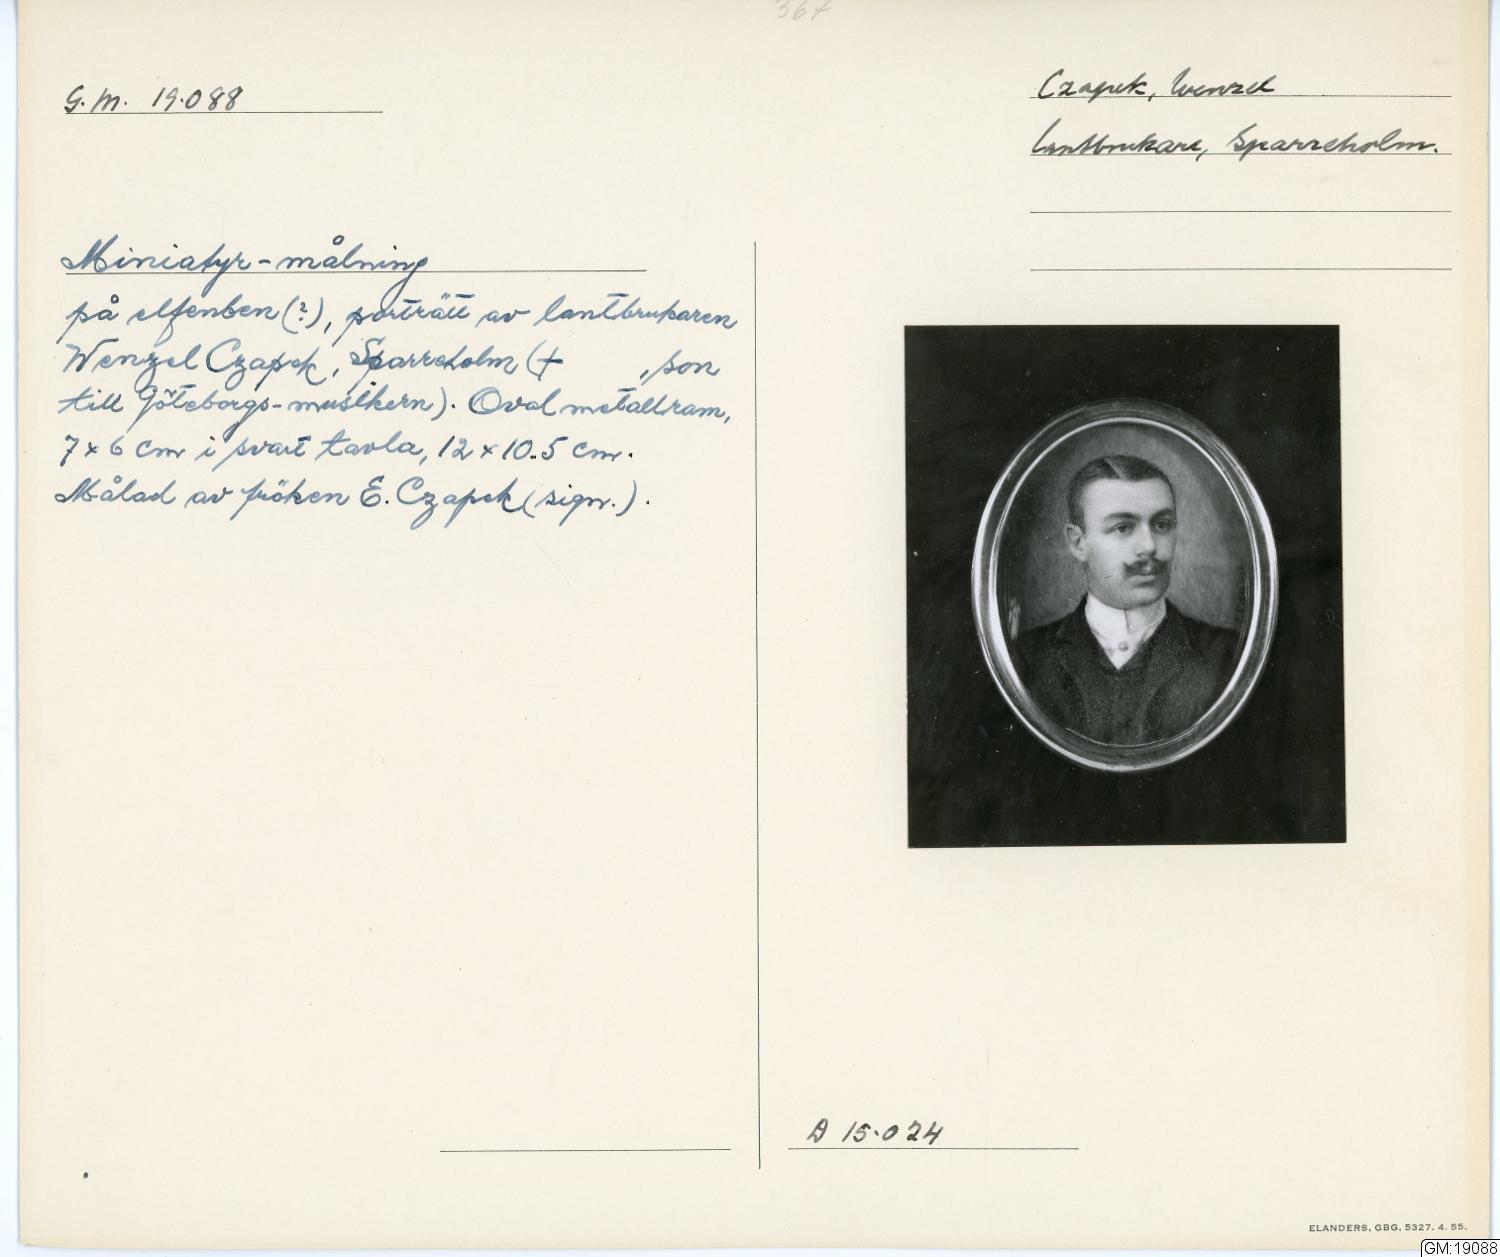 367
G.M. 19.088
Czapek, Wenzel
Lantbrukare, Sparreholm.
Miniatyr-målning
på elfenben (?), porträtt av lantbrukaren
Wenzel Czapek, Sparreholm (+ , son
till Göteborgs-musikern). Oval metallram,
7 x 6 cm i svart tavla, 12 x 10.5 cm.
Målad av fröken E. Czapek (sign.).
A 15.024
ELANDERS, GBG, 5327. 4. 55.
GM:19088